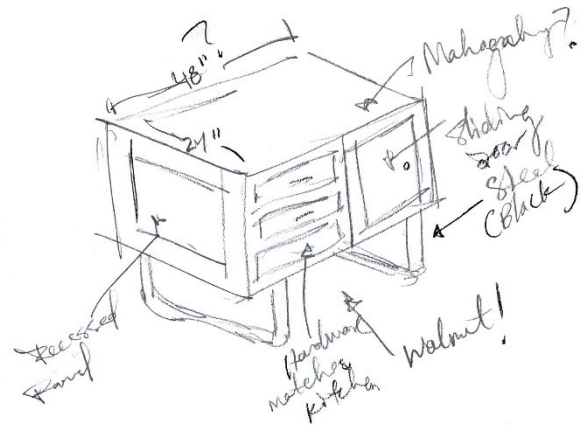 48"?
24"
Mahogahy?
Sliding
Door
Steel
(Black)
Recessed
Panel
Hardware
matches
kitchen
Walnut!